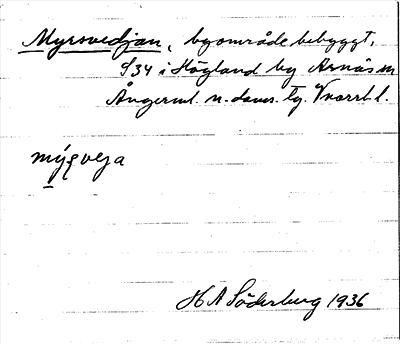 Myrsvedjan, byområde bebyggt,
S34 i Högland by Arnäs sn
Ångerml. n. doms. tg. Vnorrl l.
mýʂveja
H A Söderberg 1936